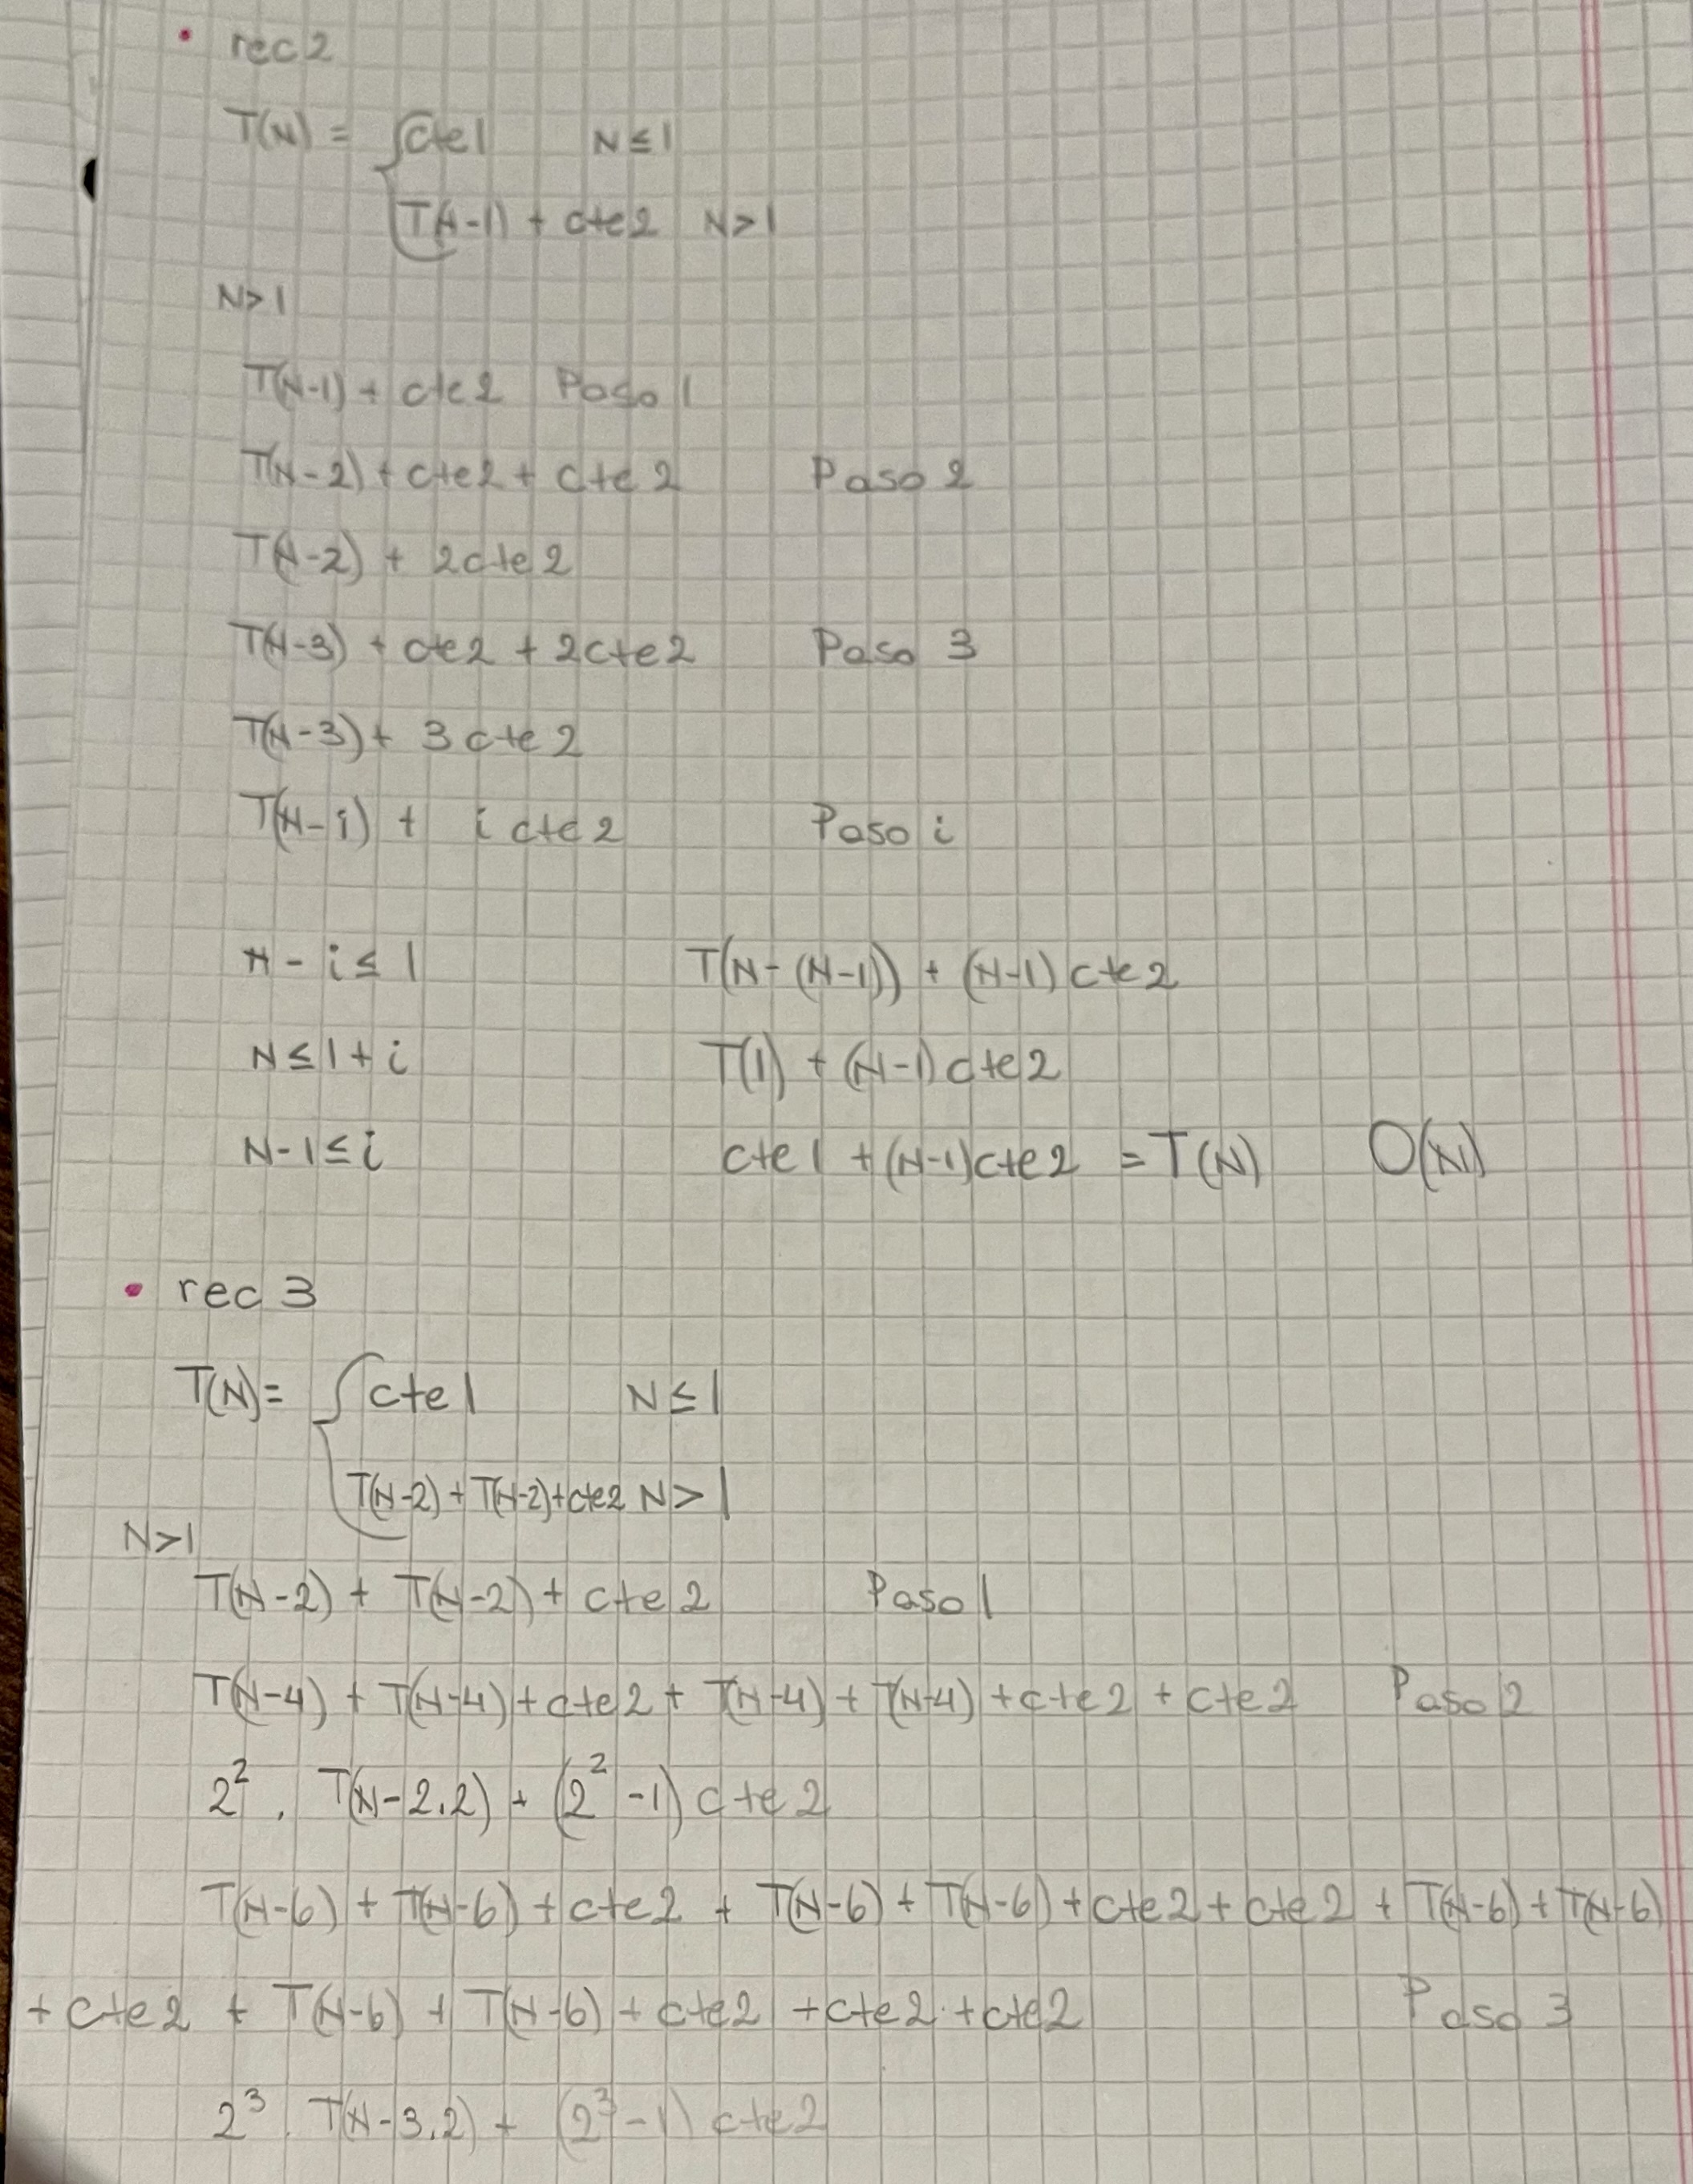 • rec2
T(N) = { cte1 N ≤ 1
T(N-1) + cte2 N > 1
N > 1
T(N-1) + cte2 Paso 1
T(N-2) + cte2 + cte2 Paso 2
T(N-2) + 2cte2
T(N-3) + cte2 + 2cte2 Paso 3
T(N-3) + 3cte2
T(N-i) + i cte2 Paso i
N - i ≤ 1 T(N-(N-1)) + (N-1) cte2
N ≤ 1 + i T(1) + (N-1) cte2
N-1 ≤ i cte1 + (N-1)cte2 = T(N) O(N)
• rec3
T(N) = { cte1 N ≤ 1
T(N-2) + T(N-2) + cte2 N > 1
N > 1
T(N-2) + T(N-2) + cte2 Paso 1
T(N-4) + T(N-4) + cte2 + T(N-4) + T(N-4) + cte2 + cte2 Paso 2
2² . T(N-2.2) + (2² -1) cte2
T(N-6) + T(N-6) + cte2 + T(N-6) + T(N-6) + cte2 + cte2 + T(N-6) + T(N-6)
+ cte2 + T(N-6) + T(N-6) + cte2 + cte2 + cte2 Paso 3
2³ . T(N-3.2) + (2³ -1) cte2